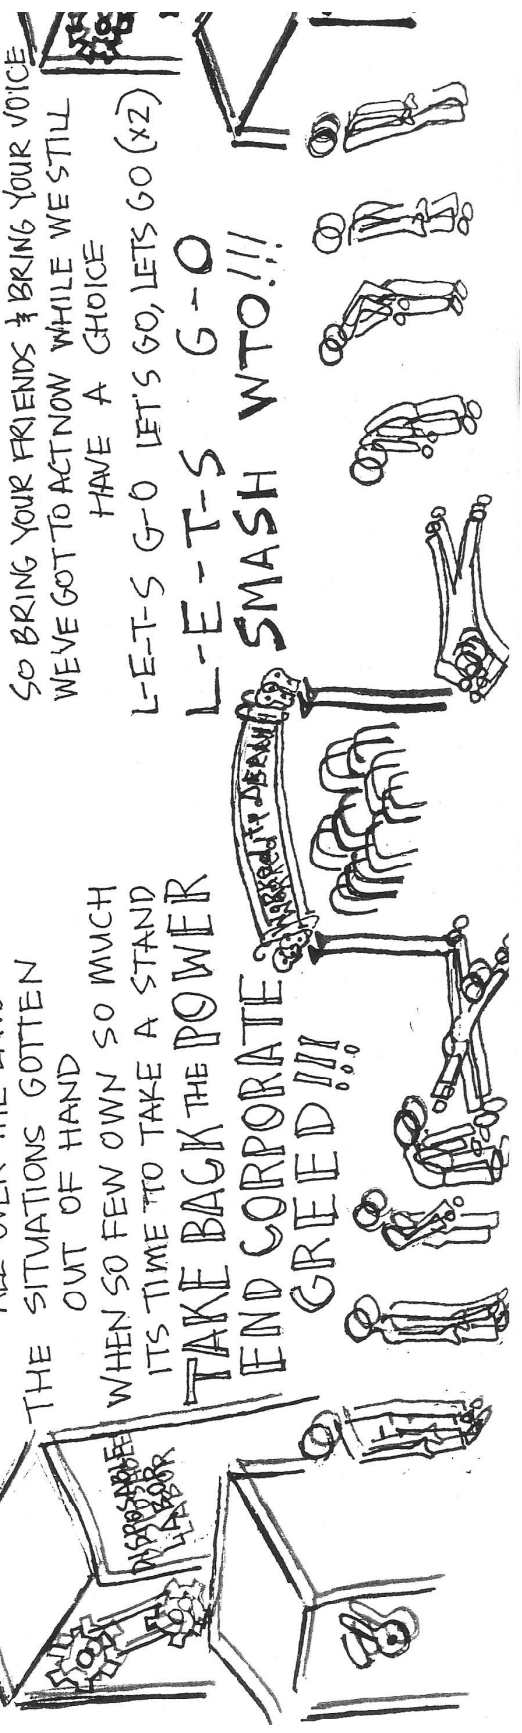 ALL OVER THE LAND
THE SITUATIONS GOTTEN
OUT OF HAND
WHEN SO FEW OWN SO MUCH
ITS TIME TO TAKE A STAND
TAKE BACK THE POWER
END CORPORATE
GREED!!!
DISPOSABLE
LABOR
SO BRING YOUR FRIENDS & BRING YOUR VOICE
WE'VE GOT TO ACT NOW WHILE WE STILL
HAVE A CHOICE
L-E-T-S G-O LET'S GO, LETS GO (x2)
L-E-T-S G-O
SMASH WTO!!!